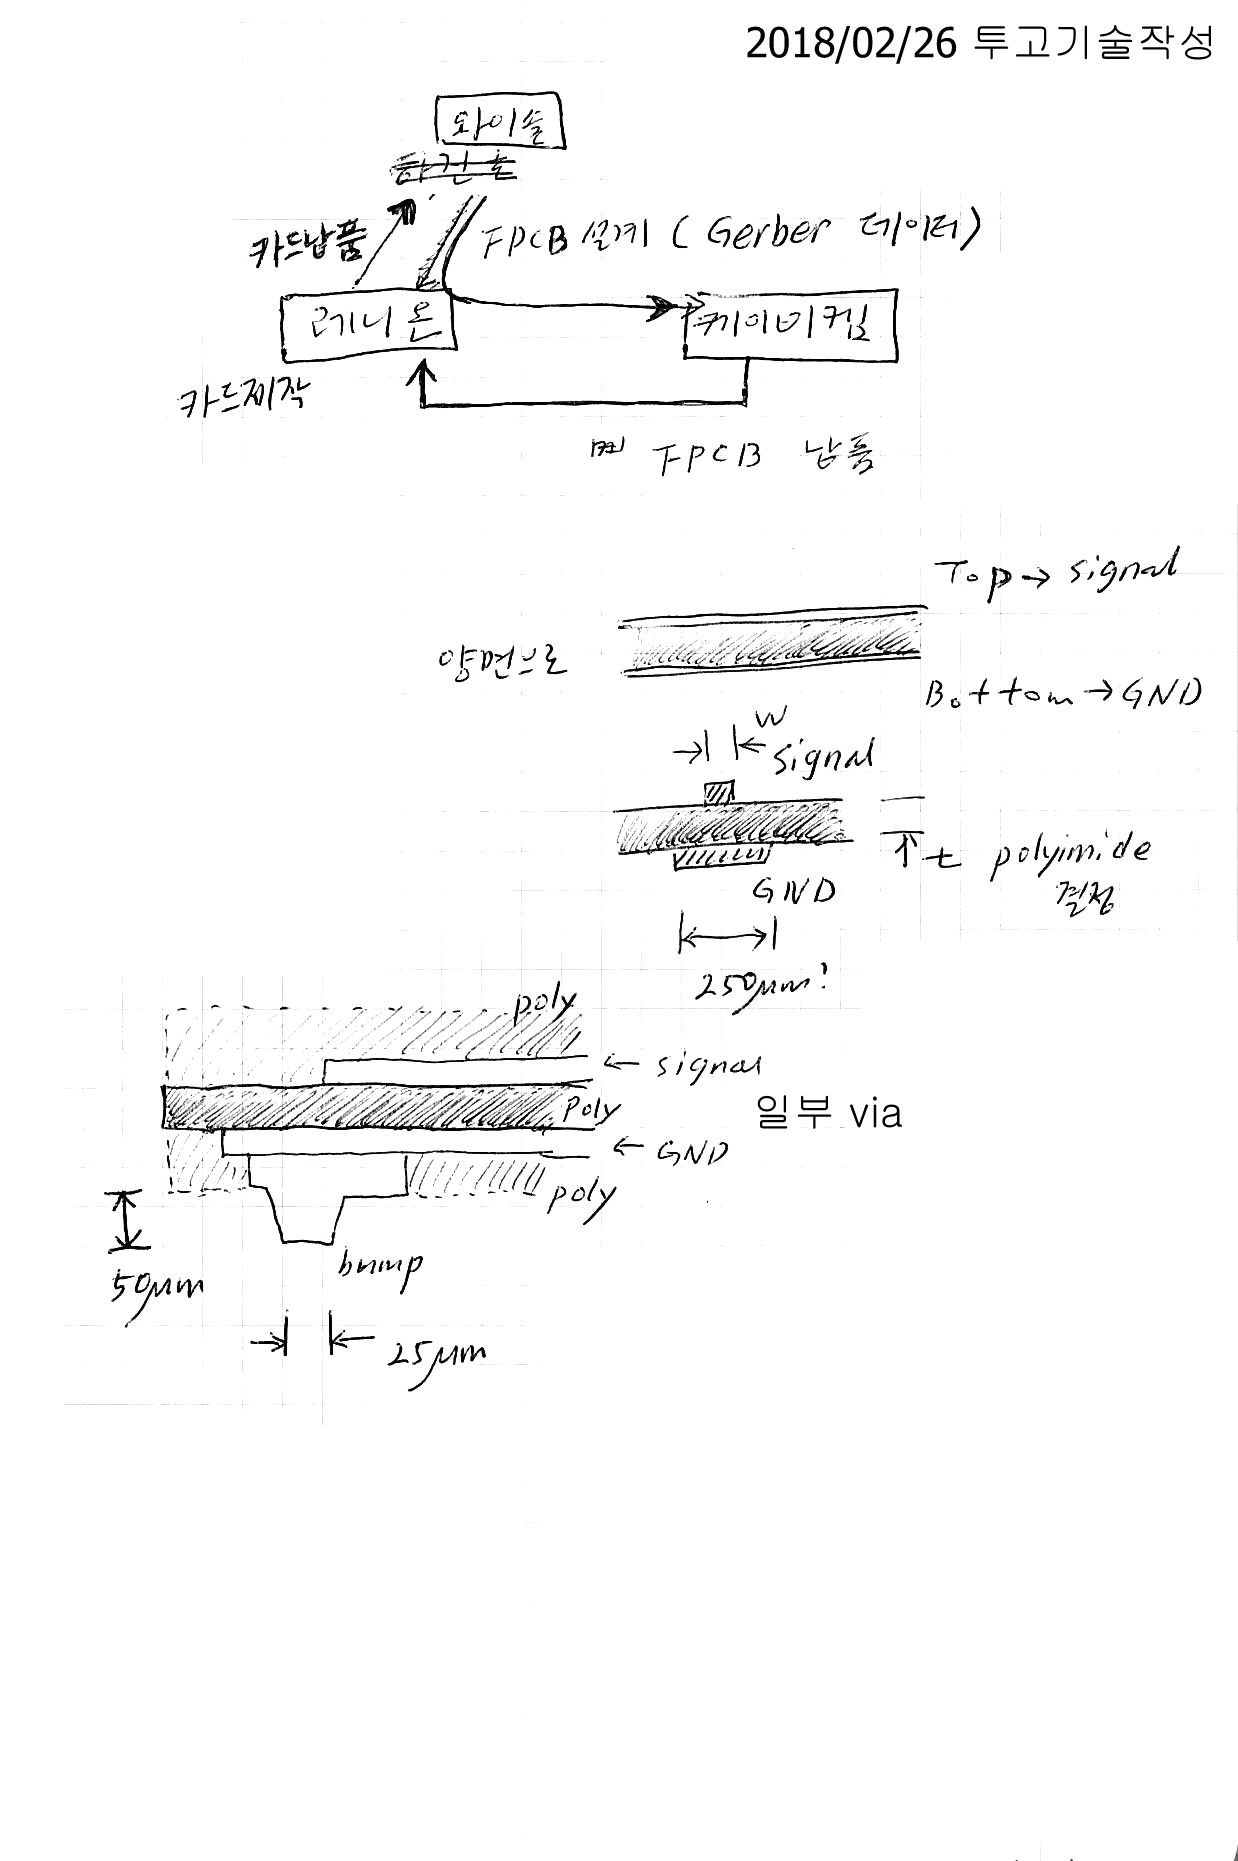 2018/02/26 투고기술작성
와이솔
카드납품
FPCB 설계 ( Gerber 데이터 )
레니온
케이비켐
카드제작
FPCB 납품
Top → signal
양면으로
Bottom → GND
W
signal
t polyimide
결정
GND
250μm?
poly
← signal
poly
일부 via
← GND
poly
50μm
bump
25μm